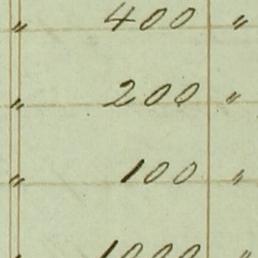 " 400 "
" 200 "
" 100 "
" 1000 "